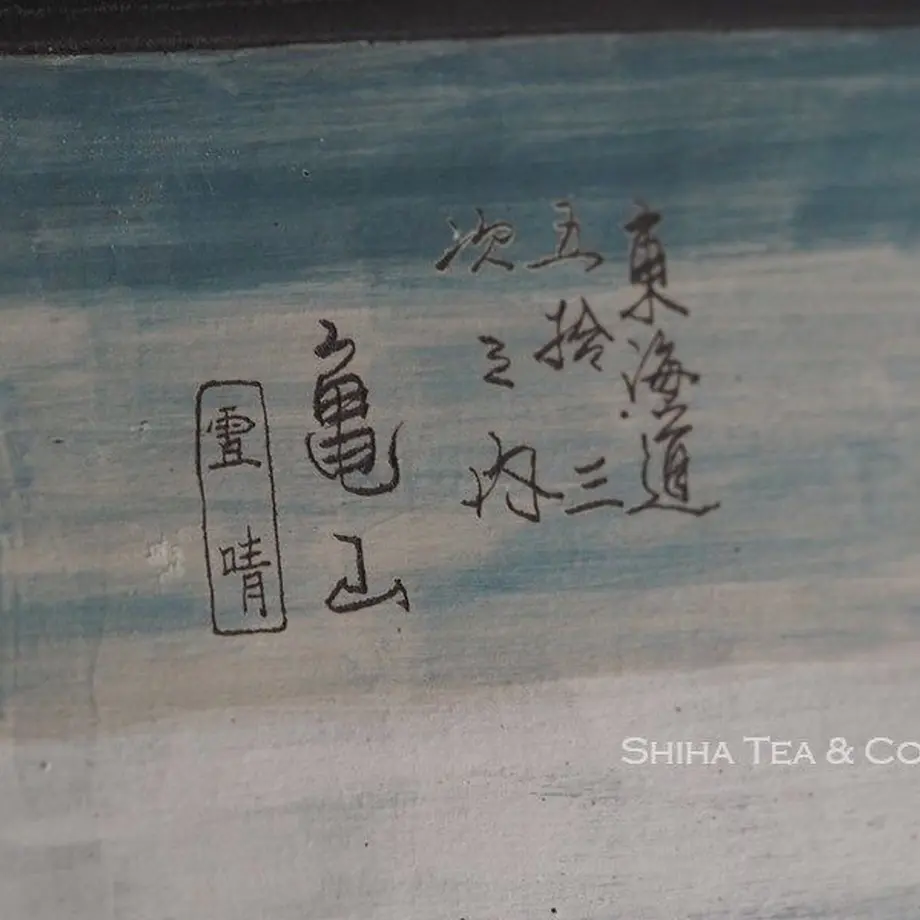 東海道
五拾三
次之内
亀山
雪晴
SHIHA TEA & CO